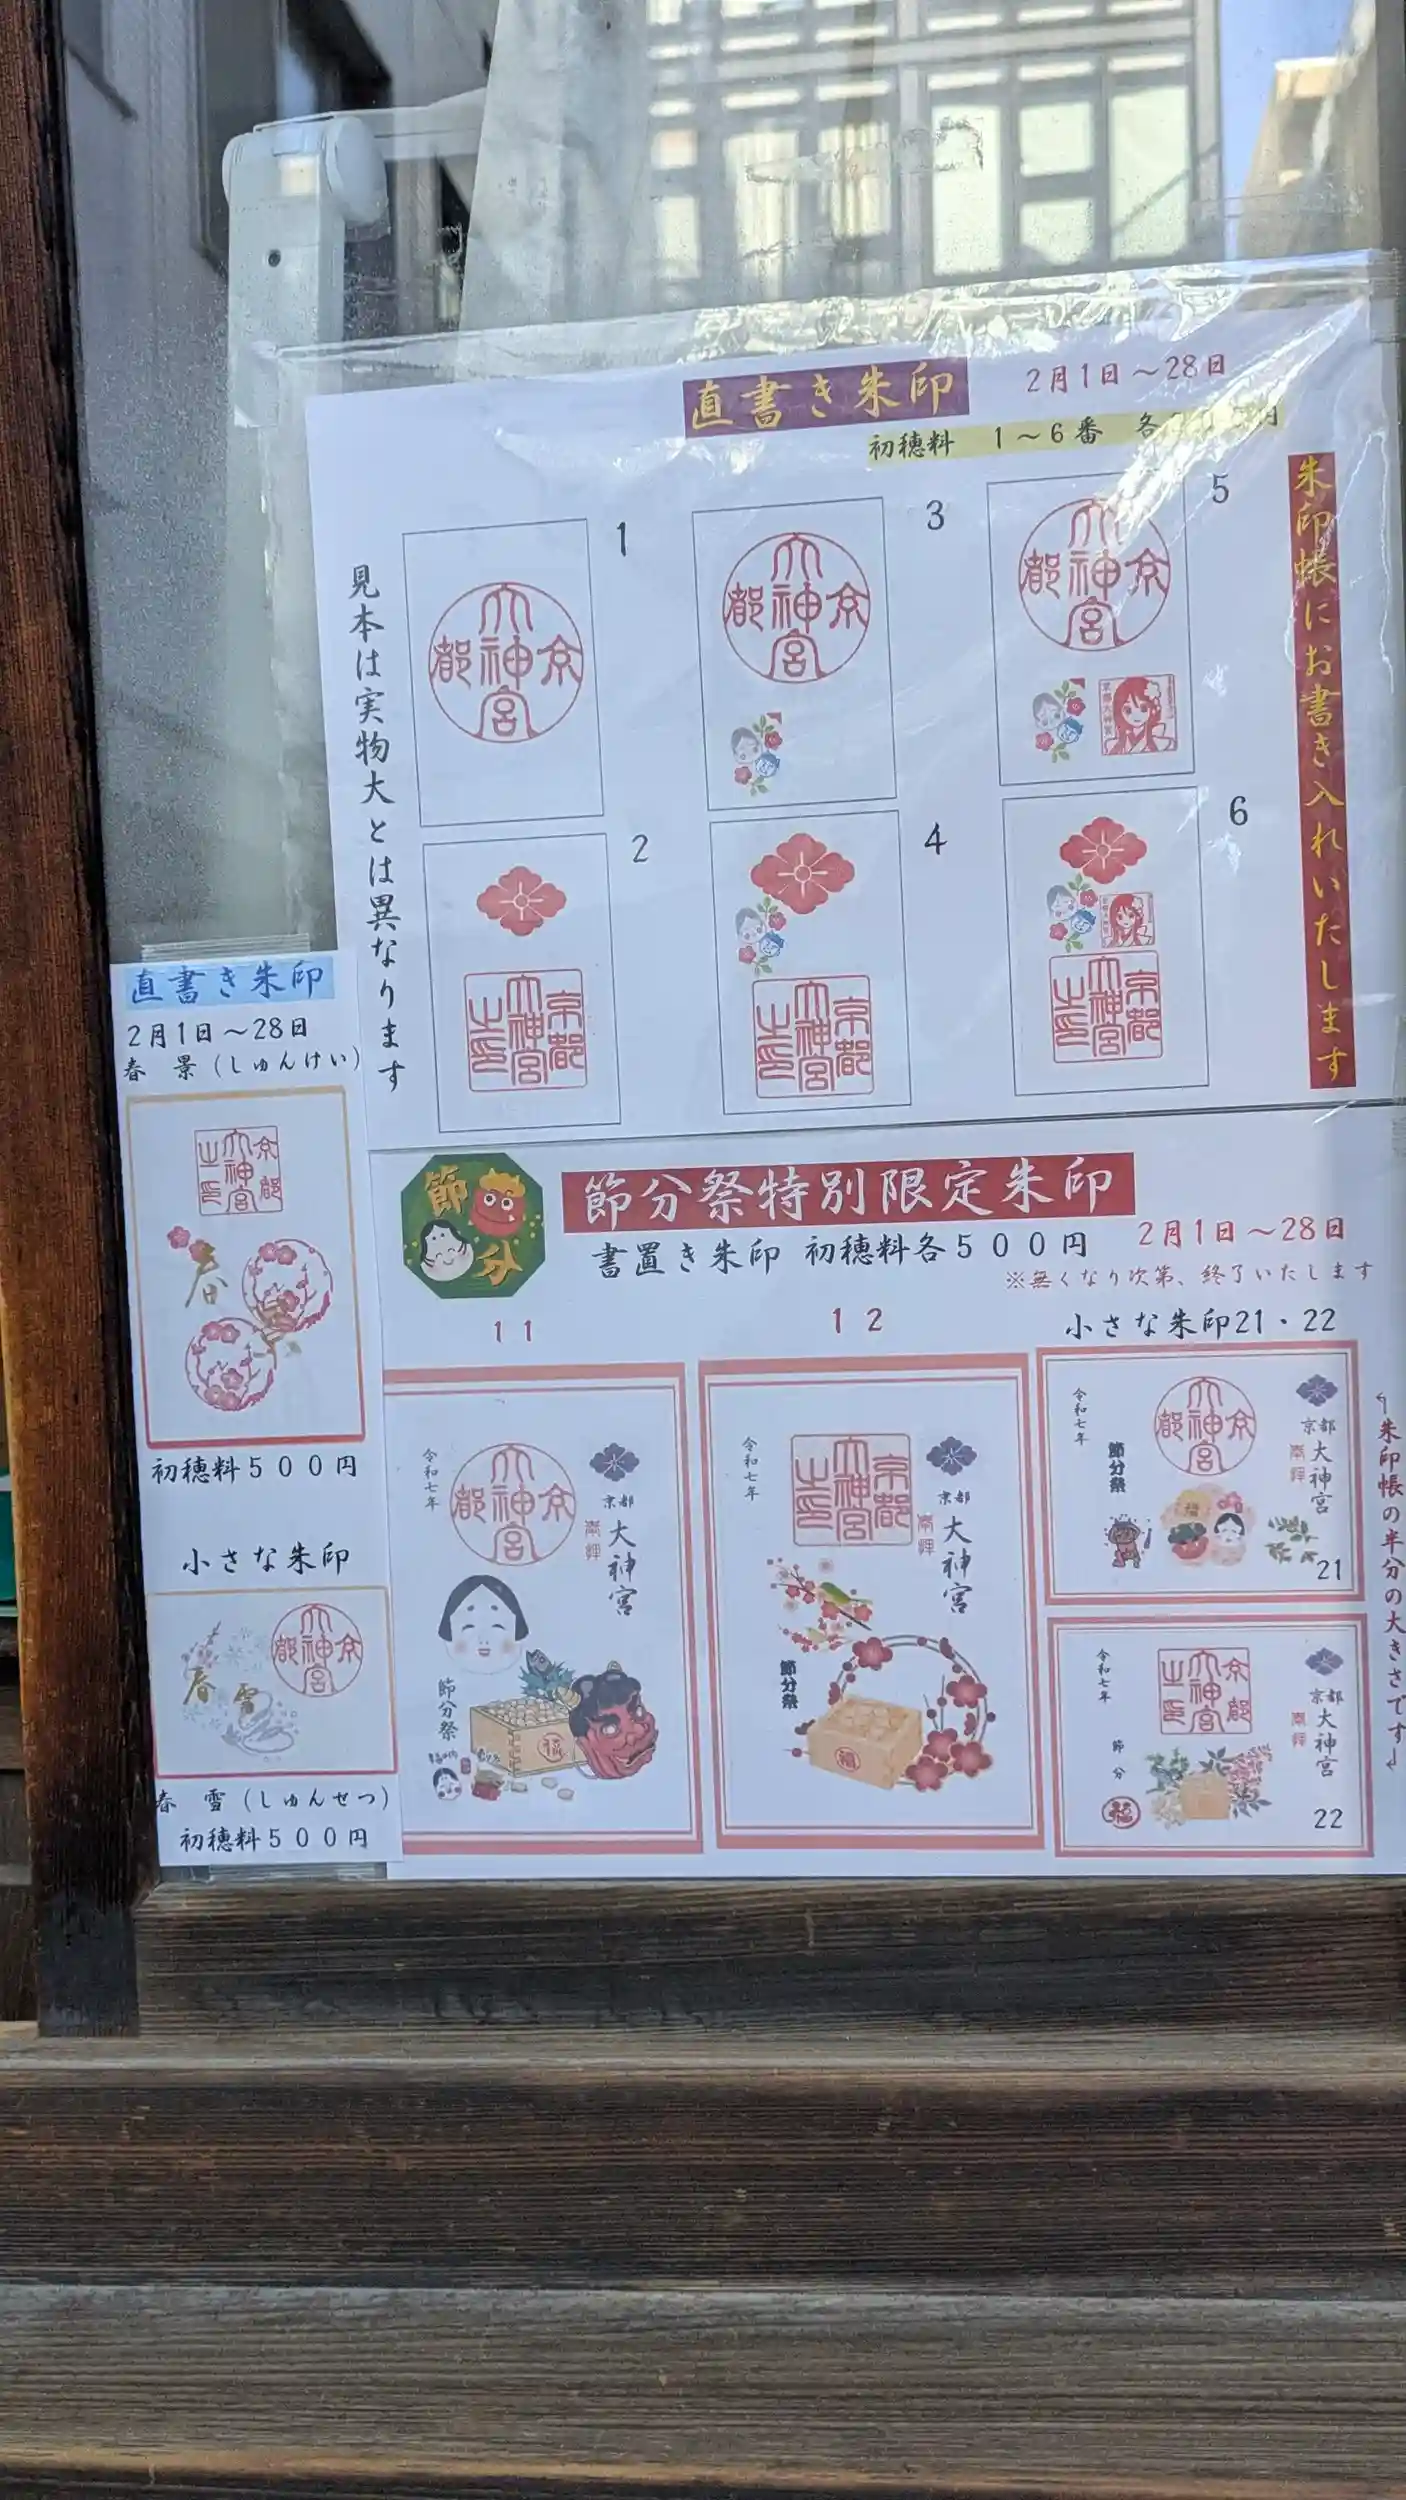 直書き朱印
2月1日～28日
初穂料 1～6番 各
朱印帳にお書き入れいたします
見本は実物大とは異なります
1
京都大神宮
3
京都大神宮
5
京都大神宮
京都大神宮
2
京都大神宮之印
4
京都大神宮之印
6
京都大神宮之印
直書き朱印
2月1日～28日
春 景(しゅんけい)
京都大神宮之印
春
景
初穂料500円
小さな朱印
京都大神宮
春
雪
春 雪(しゅんせつ)
初穂料500円
節
分
節分祭特別限定朱印
書置き朱印 初穂料各500円
2月1日～28日
※無くなり次第、終了いたします
11
京都
大神宮
奉拝
京都大神宮
令和七年
節分祭
福
12
京都
大神宮
奉拝
京都大神宮之印
令和七年
節分祭
福
小さな朱印21・22
京都
大神宮
奉拝
京都大神宮
令和七年
節分祭
21
京都
大神宮
奉拝
京都大神宮之印
令和七年
節分
福
22
朱印帳の半分の大きさです